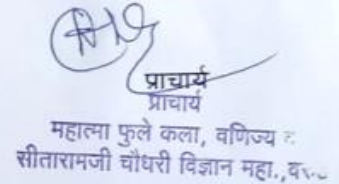 प्राचार्य
प्राचार्य
महात्मा फुले कला, वणिज्य
सीतारामजी चौधरी विज्ञान महा.,